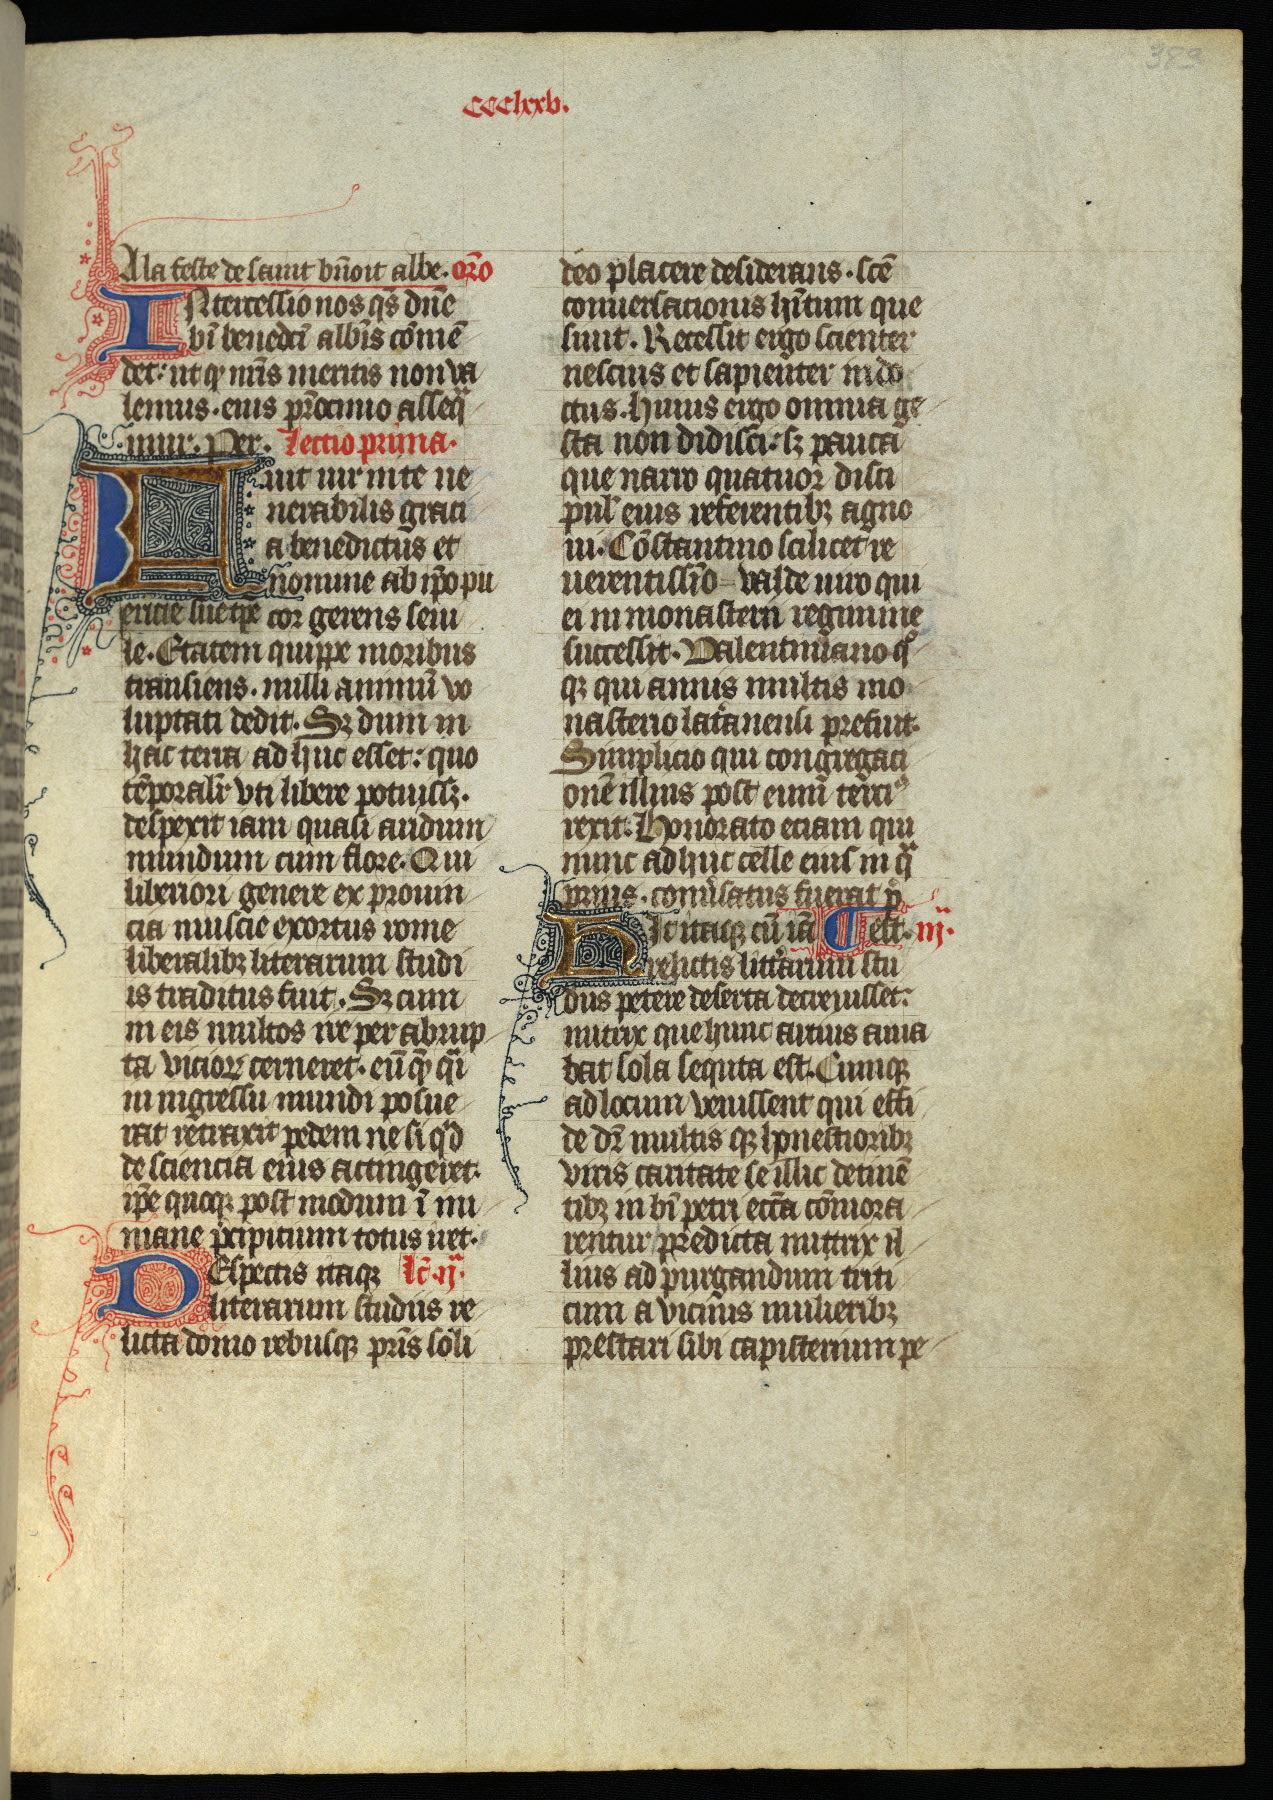 383
CCClxxv.
A la feste de saint bn̄oit albe. or̄o
INtercessio nos qs̄ dn̄e
bī benedcī albīs com̄ē
det: ut qͥ mr̄is meritis non va
lemus. eius pr̄ocinio asseqͣ
mur. Per. Lectio prima.
uit uir uite ue
nerabilis graci
a benedictus et
nomine ab ip̄o pu
ericie sue tꝑe cor gerens seni
le. Etatem quippe moribus
transiens. nulli animū vo
luptati dedit. Sꝫ dum in
hac terra ad huc esset: quo
tēporalr̄ vti libere potuissꝫ.
despexit iam quasi aridum
mundum cum flore. Qui
liberiori genere ex prouin
cia nuscie exortus rome
liberalibꝫ literarum studi
is traditus fuit. Sꝫ cum
in eis multos ire per abrup
ta vicioꝝ cerneret. eū qͥ qͣi
in ingressu mundi posue
rat retraxit pedem ne si qͥd
de sciencia eius actingeret.
ip̄e quoqꝫ post modum ī īm
mane p̄cipitium totus iret.
DEspectis itaqꝫ lc̄.ij.ͣ
literarum studiis re
licta domo rebusqꝫ pr̄is soli
deo placere desiderans. scē
conuersacionis hītum que
siuit. Recessit ergo scienter
nescius et sapienter indo
ctus. Huius ergo omnia ge
sta non didisci: sꝫ pauca
que narro quatuor disci
pul' eius referentibꝫ agno
ui. Cōstantino scilicet re
uerentissīo valde uiro qui
ei in monasterii regimine
successit. Valentiniano qͦ
qꝫ qui annis multis mo
nasterio lat̄anensi prefuit.
Simplicio qui congregaci
onē illius post eum terciꝰ
rexit. Honorato eciam qui
nunc adhuc celle eius in qͣ
prius. conūsatus fuerat p̄
HIc itaqꝫ cū iā est. iij.ͣ
relictis litt̄arum stu
diis petere deserta decreuisset:
nutrix que hunc artius ama
bat sola sequta est. Cumqꝫ
ad locum venissent qui effi
de dr̄ multis qꝫ honestioribꝫ
viris caritate se illic detinē
tibꝫ in bī petri ecc̄a cōmora
rentur predicta nutrix il
lius ad purgandum triti
cum a vicinis mulieribꝫ
prestari sibi capisterium pe